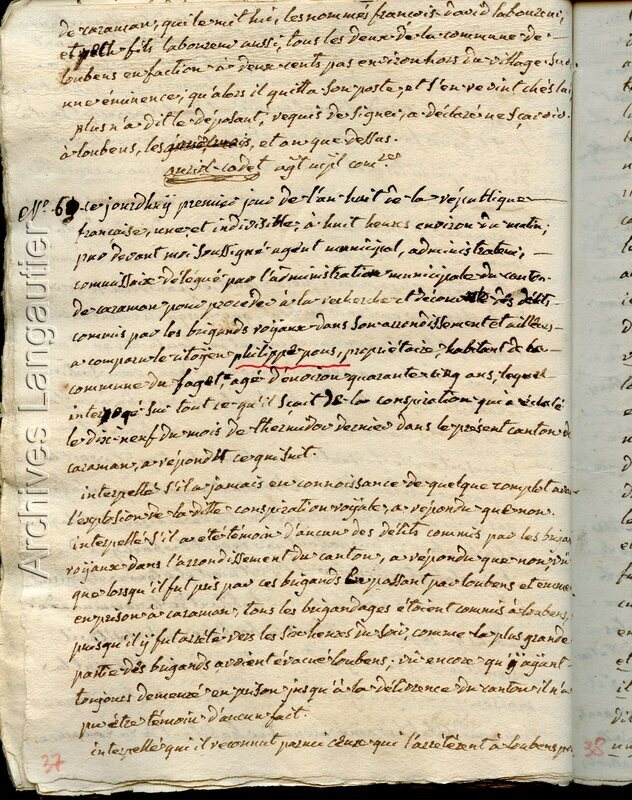 de caraman, qui le mit hu, les nommés françois david laboureur,
et fils laboureur aussi, tous les deux de la commune de
loubens en faction à deux cents pas environ hors du village sur
une éminence; qu'alors il quitta son poste et s'en revint chés lui
plus n'a dit le deposant, requis de signer, a déclaré ne sçavoir.
à loubens, les jour, mois, et an que dessus.
cadet agt mpl comre
No. 69 ce jourdhuy premier jour de l'an huit de la republique
francaise, une et indivisible, à huit heures environ du matin;
par devant moi soussigné agent municipal, administrateur,
commissaire délégué par l'administration municipale du canton
de caraman pour proceder à la recherche et découverte des délits
commis par les brigands royaux dans son arrondissement et ailleurs
a comparu le citoyen philippe pons, propriétaire, habitant de la
commune du faget, agé d'environ quarante cinq ans, lequel
interrogé sur tout ce qu'il scait de la conspiration qui a éclaté
le dix neuf du mois de thermidor dernier dans le present canton de
caraman, a répondu ce qui suit.
interpellé s'il a jamais eu connaissance de quelque complot avant
l'explosion de la ditte conspiration royale, a répondu que non.
interpellé s'il a eté témoin d'aucun des délits commis par les brigands
royaux dans l'arrondissement du canton, a répondu que non vû
que lorsqu'il fut pris par ces brigands en passant par loubens et emmené
en prison à caraman, tous les brigandages etoient commis à loubens,
puisqu'il y fut arreté vers les six heures du soir, comme la plus grande
partie des brigands avoient évacué loubens; vû encore qu'y ayant
toujours demeuré en prison jusqu'à la délivrence du canton il n'a
pu etre témoin d'aucun fait.
interpellé qui il reconnut parmi ceux qui l'arrêtèrent à loubens pour
37
38
Archives Langautier